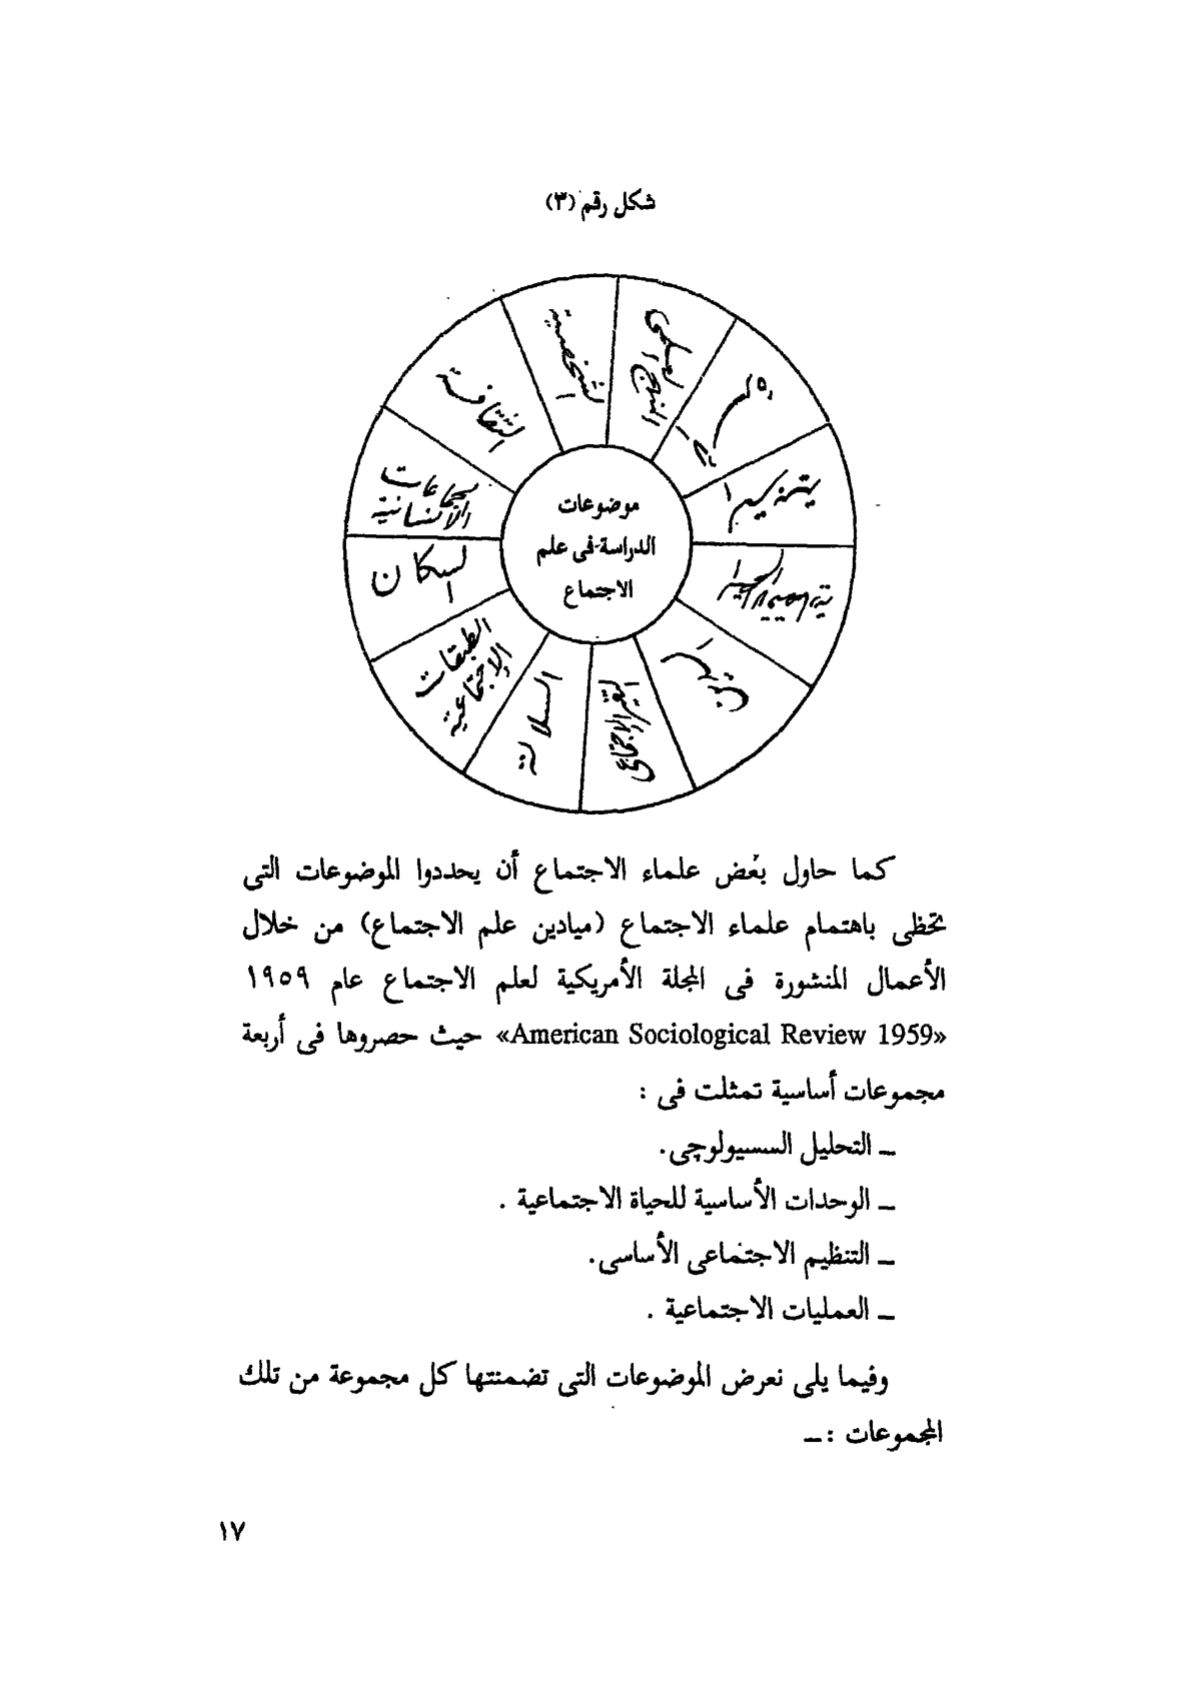 شكل رقم (٣)
المنهج العلمى
الشخصية
الثقافة
الجماعات
الإنسانية
السكان
الطبقات
الاجتماعية
السلالة
التغير الاجتماعى
موضوعات
الدراسة فى علم
الاجتماع
كما حاول بعض علماء الاجتماع أن يحددوا الموضوعات التى
تحظى باهتمام علماء الاجتماع (ميادين علم الاجتماع) من خلال
الأعمال المنشورة فى المجلة الأمريكية لعلم الاجتماع عام ١٩٥٩
«American Sociological Review 1959» حيث حصروها فى أربعة
مجموعات أساسية تمثلت فى :
ــ التحليل السسيولوچى.
ــ الوحدات الأساسية للحياة الاجتماعية .
ــ التنظيم الاجتماعى الأساسى.
ــ العمليات الاجتماعية .
وفيما يلى نعرض الموضوعات التى تضمنتها كل مجموعة من تلك
المجموعات :ــ
١٧